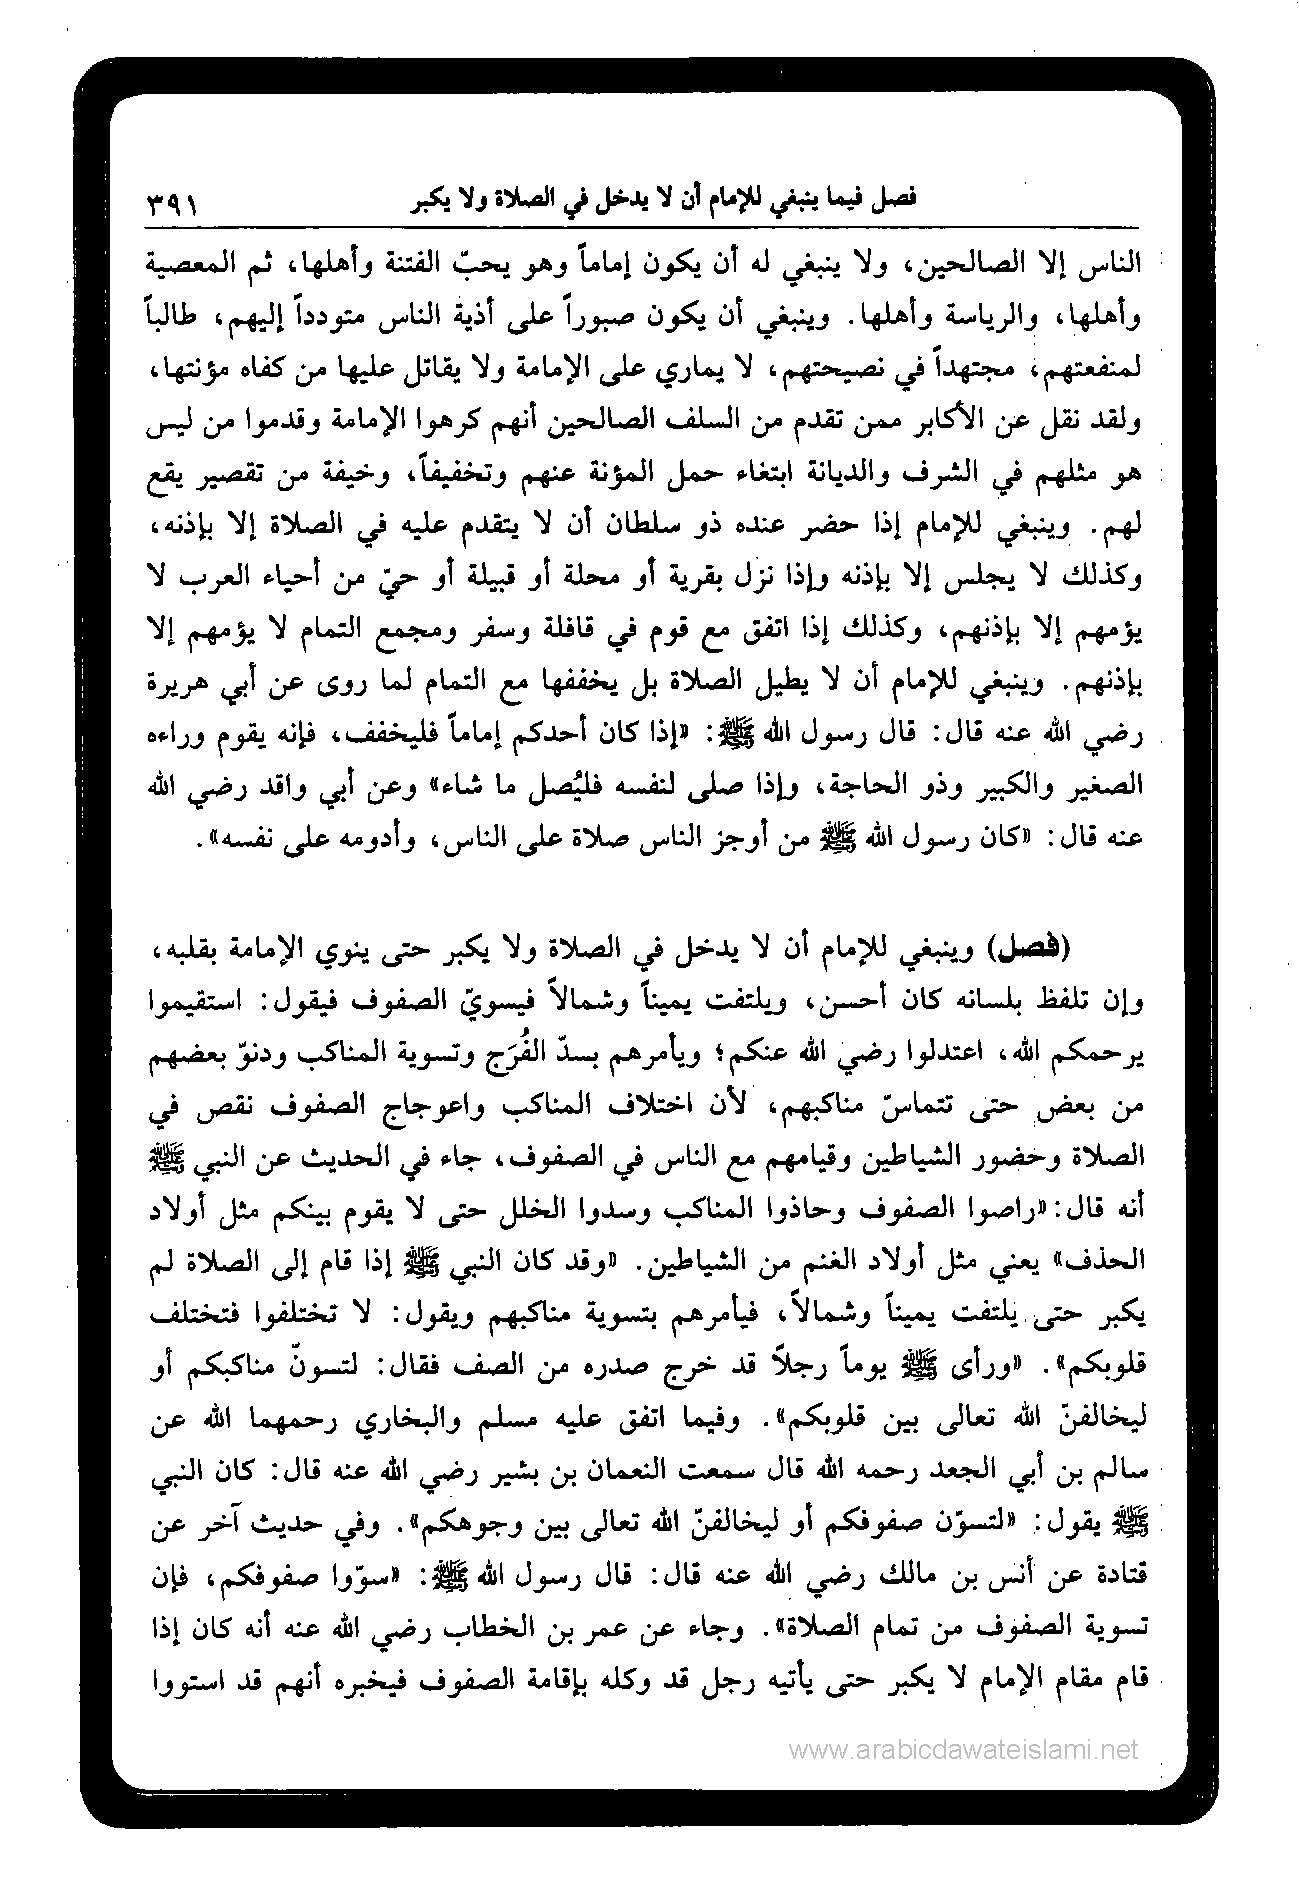 فصل فيما ينبغي للإمام أن لا يدخل في الصلاة ولا يكبر ٣٩١
الناس إلا الصالحين، ولا ينبغي له أن يكون إماماً وهو يحبّ الفتنة وأهلها، ثم المعصية
وأهلها، والرياسة وأهلها. وينبغي أن يكون صبوراً على أذية الناس متودداً إليهم، طالباً
لمنفعتهم، مجتهداً في نصيحتهم، لا يماري على الإمامة ولا يقاتل عليها من كفاه مؤنتها،
ولقد نقل عن الأكابر ممن تقدم من السلف الصالحين أنهم كرهوا الإمامة وقدموا من ليس
هو مثلهم في الشرف والديانة ابتغاء حمل المؤنة عنهم وتخفيفاً، وخيفة من تقصير يقع
لهم. وينبغي للإمام إذا حضر عنده ذو سلطان أن لا يتقدم عليه في الصلاة إلا بإذنه،
وكذلك لا يجلس إلا بإذنه وإذا نزل بقرية أو محلة أو قبيلة أو حيّ من أحياء العرب لا
يؤمهم إلا بإذنهم، وكذلك إذا اتفق مع قوم في قافلة وسفر ومجمع التمام لا يؤمهم إلا
بإذنهم. وينبغي للإمام أن لا يطيل الصلاة بل يخففها مع التمام لما روى عن أبي هريرة
رضي الله عنه قال: قال رسول الله ﷺ: «إذا كان أحدكم إماماً فليخفف، فإنه يقوم وراءه
الصغير والكبير وذو الحاجة، وإذا صلى لنفسه فليُصل ما شاء» وعن أبي واقد رضي الله
عنه قال: «كان رسول الله ﷺ من أوجز الناس صلاة على الناس، وأدومه على نفسه».
(فصل) وينبغي للإمام أن لا يدخل في الصلاة ولا يكبر حتى ينوي الإمامة بقلبه،
وإن تلفظ بلسانه كان أحسن، ويلتفت يميناً وشمالاً فيسويّ الصفوف فيقول: استقيموا
يرحمكم الله، اعتدلوا رضي الله عنكم؛ ويأمرهم بسدّ الفُرَج وتسوية المناكب ودنوّ بعضهم
من بعض حتى تتماسّ مناكبهم، لأن اختلاف المناكب واعوجاج الصفوف نقص في
الصلاة وحضور الشياطين وقيامهم مع الناس في الصفوف، جاء في الحديث عن النبي ﷺ
أنه قال: «راصوا الصفوف وحاذوا المناكب وسدوا الخلل حتى لا يقوم بينكم مثل أولاد
الحذف» يعني مثل أولاد الغنم من الشياطين. «وقد كان النبي ﷺ إذا قام إلى الصلاة لم
يكبر حتى يلتفت يميناً وشمالاً، فيأمرهم بتسوية مناكبهم ويقول: لا تختلفوا فتختلف
قلوبكم». «ورأى ﷺ يوماً رجلاً قد خرج صدره من الصف فقال: لتسونّ مناكبكم أو
ليخالفنّ الله تعالى بين قلوبكم». وفيما اتفق عليه مسلم والبخاري رحمهما الله عن
سالم بن أبي الجعد رحمه الله قال سمعت النعمان بن بشير رضي الله عنه قال: كان النبي
ﷺ يقول: «لتسوّن صفوفكم أو ليخالفنّ الله تعالى بين وجوهكم». وفي حديث آخر عن
قتادة عن أنس بن مالك رضي الله عنه قال: قال رسول الله ﷺ: «سوّوا صفوفكم، فإن
تسوية الصفوف من تمام الصلاة». وجاء عن عمر بن الخطاب رضي الله عنه أنه كان إذا
قام مقام الإمام لا يكبر حتى يأتيه رجل قد وكله بإقامة الصفوف فيخبره أنهم قد استووا
www.arabicdawateislami.net